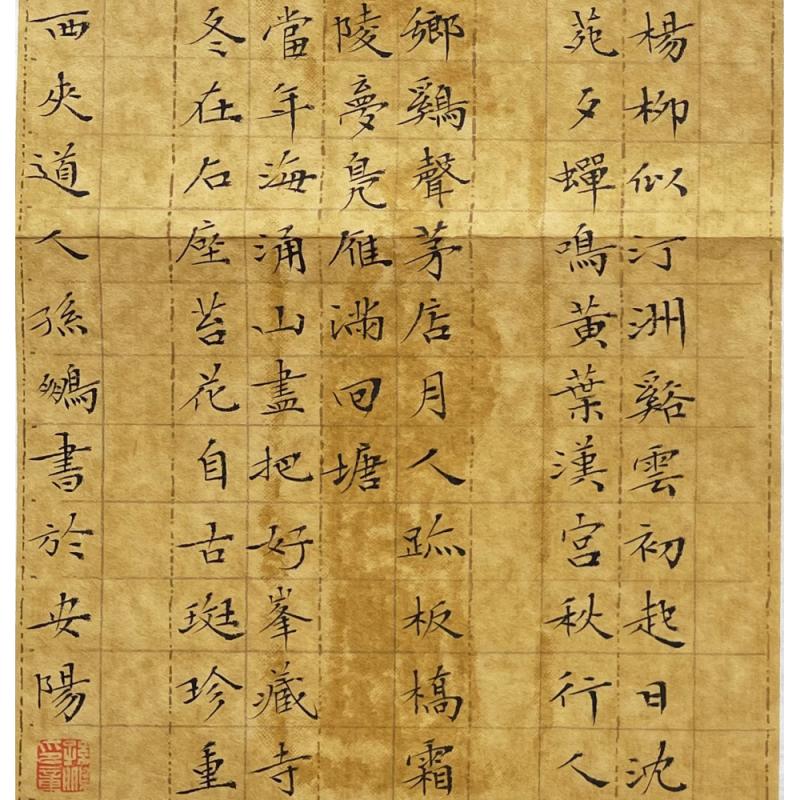 楊柳似汀洲谿雲初起日沈
苑夕蟬鳴黃葉漢宮秋行人
鄉鷄聲茅店月人跡板橋霜
陵夢鳧雁滿回塘
當年海涌山盡把好峯藏寺
冬在石座苔花自古斑珍重
西夾道人孫鵬書於安陽